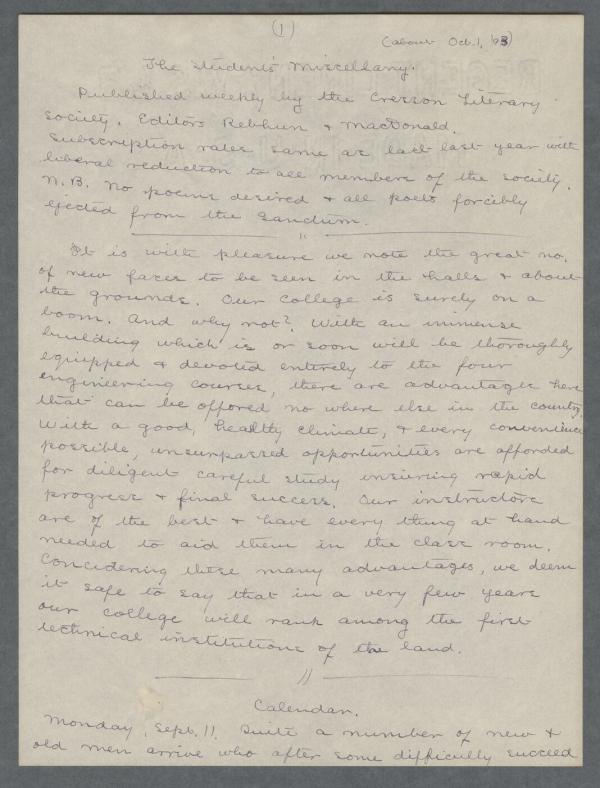 (1)
(about Oct. 1, '93)
The Students Miscellany.
Published weekly by the Cresson Literary
Society. Editors Rebhun & MacDonald.
Subscription rates same as last last year with
liberal reduction to all members of the society.
N.B. No poems desired & all poets forcibly
ejected from the sanctum.
It is with pleasure we note the great no.
of new faces to be seen in the halls & about
the grounds. Our college is surely on a
boom. And why not? With an immense
building which is or soon will be thoroughly
equipped & devoted entirely to the four
engineering courses, there are advantages here
that can be offored no where else in the country.
With a good, healthy climate, & every convenience
possible, unsurpassed opportunities are afforded
for diligent careful study insuring rapid
progress & final success. Our instructors
are of the best & have every thing at hand
needed to aid them in the class room.
Considering these many advantages, we deem
it safe to say that in a very few years
our college will rank among the first
technical institutions of the land.
Calendar.
Monday, Sept. 11. Quite a number of new &
old men arrive who after some difficully succeed